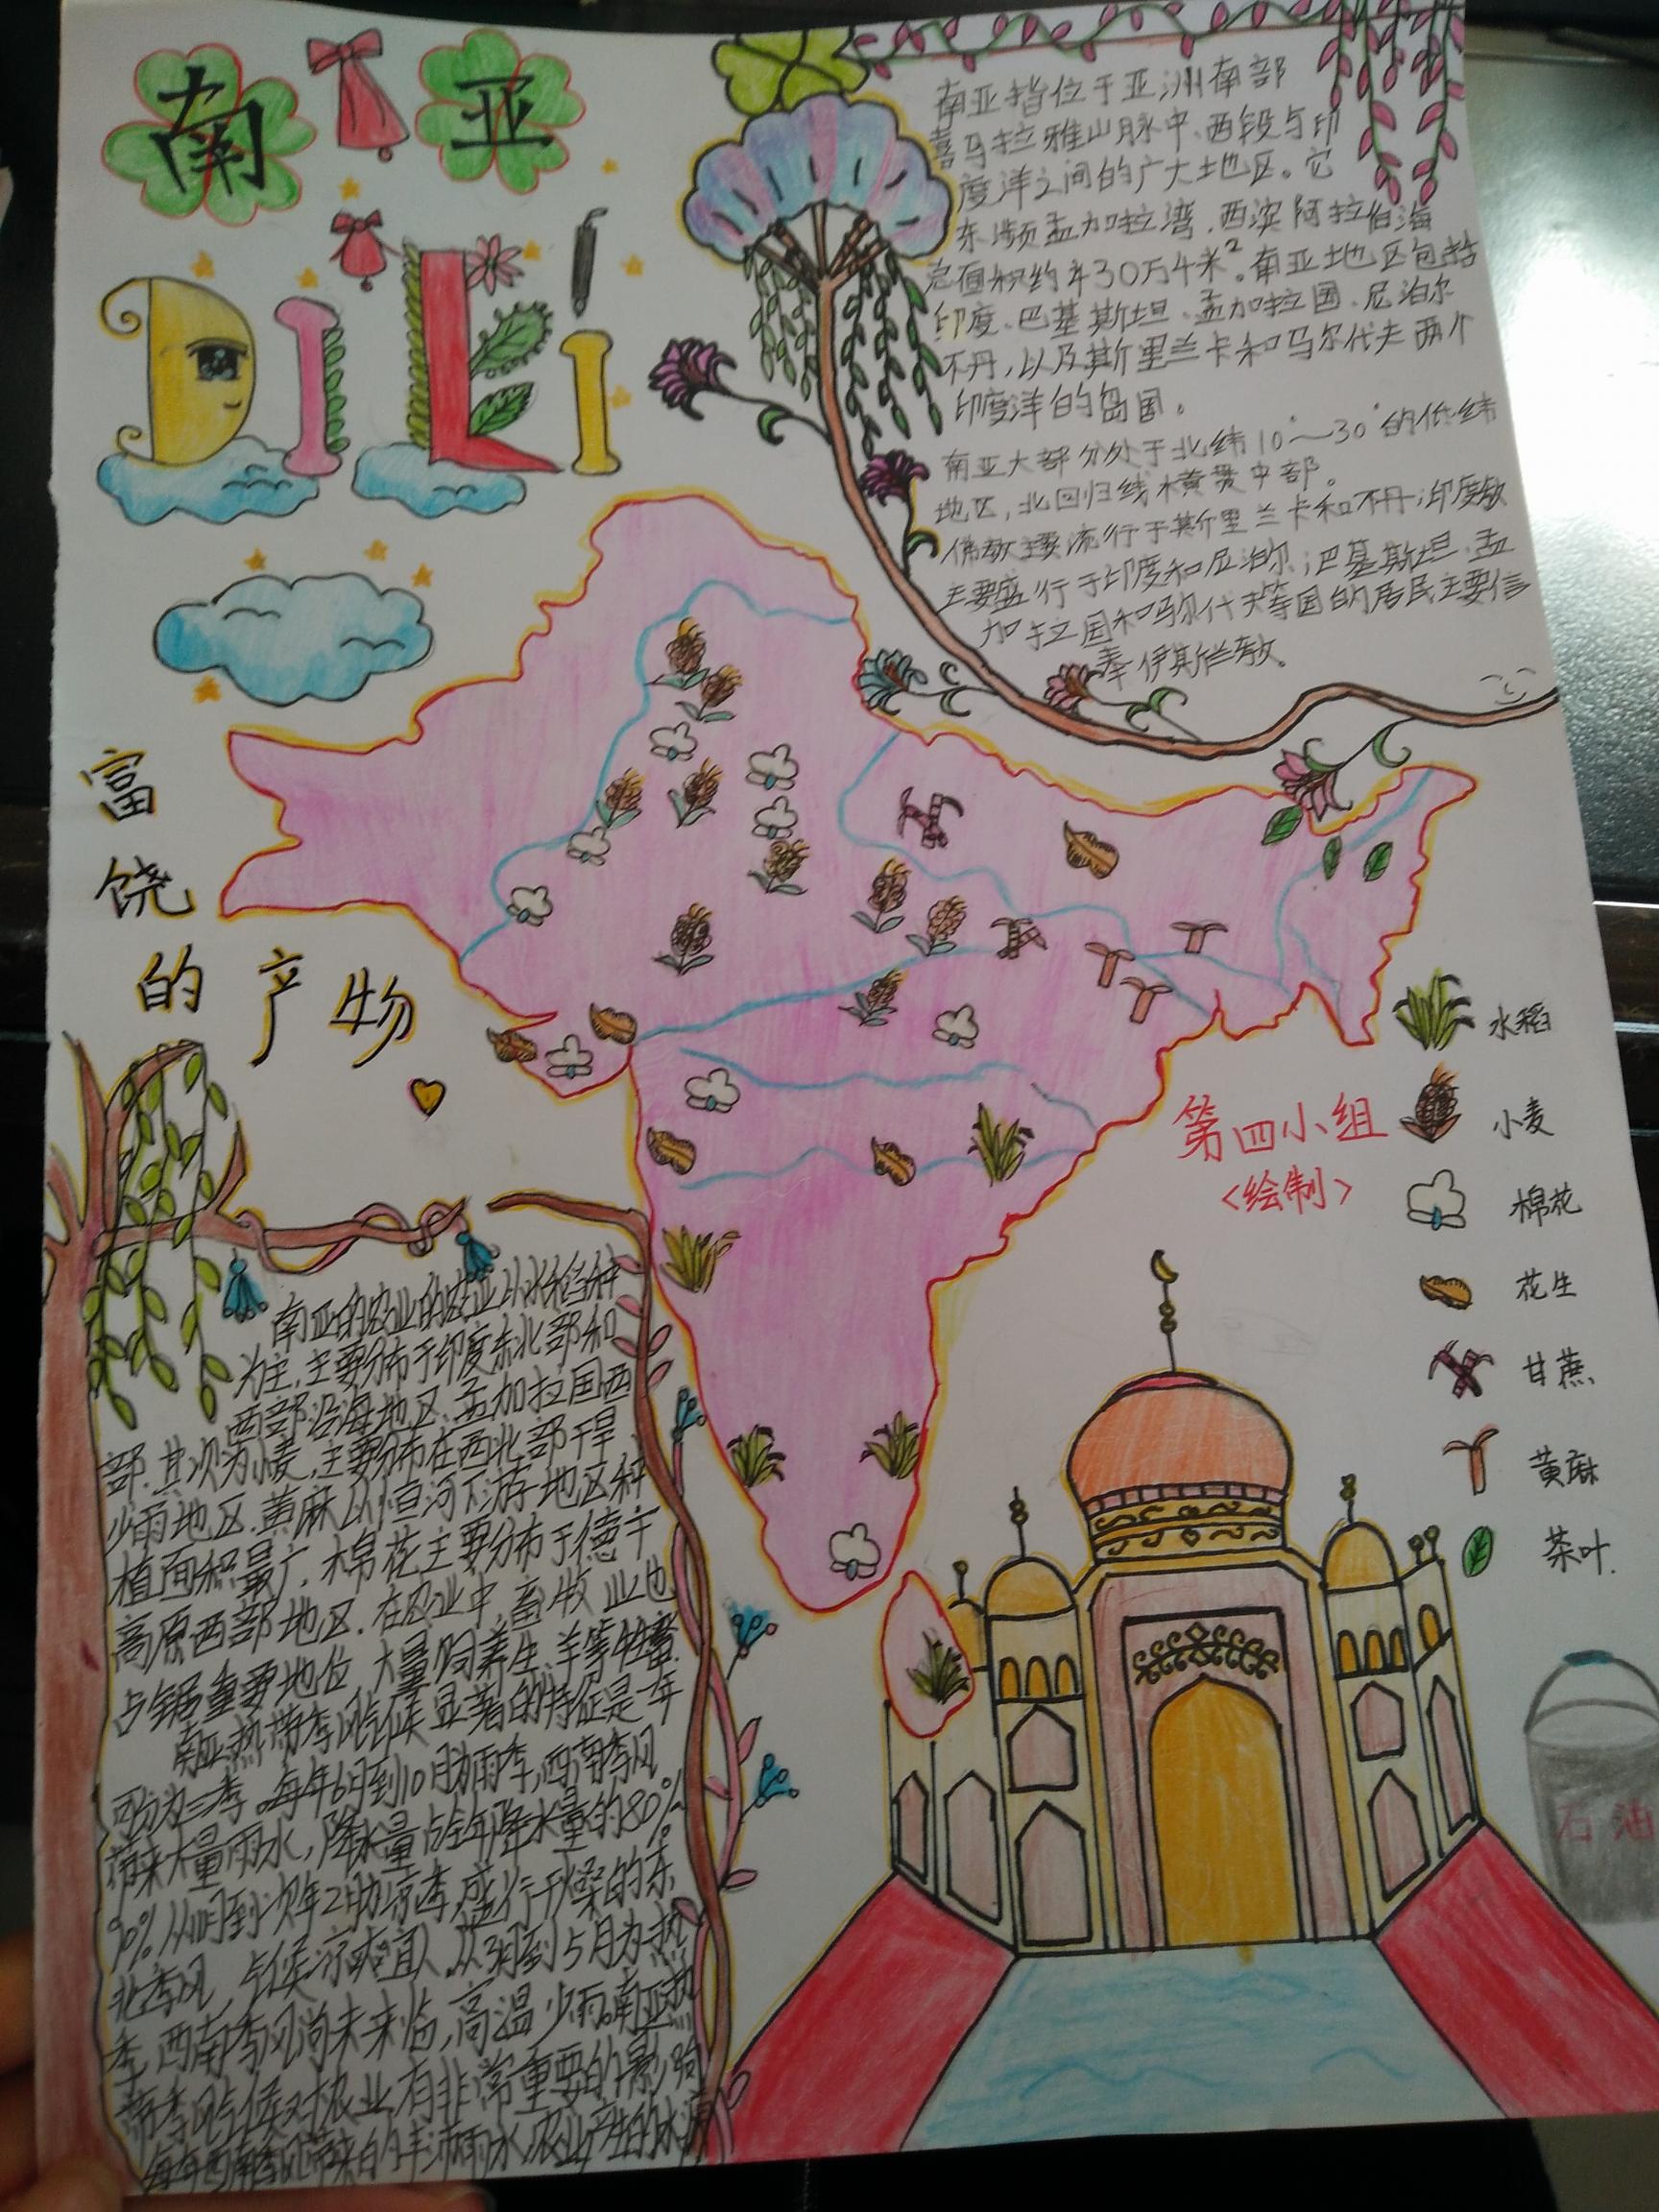 南亚
DILi
南亚指位于亚洲南部
喜马拉雅山脉中、西段与印
度洋之间的广大地区。它
东濒孟加拉湾,西滨阿拉伯海
总面积约430万千米²。南亚地区包括
印度、巴基斯坦、孟加拉国、尼泊尔
不丹,以及斯里兰卡和马尔代夫两个
印度洋的岛国。
南亚大部分处于北纬10°~30°的低纬
地区,北回归线横贯中部。
佛教主要流行于斯里兰卡和不丹;印度教
主要盛行于印度和尼泊尔;巴基斯坦、孟
加拉国和马尔代夫等国的居民主要信
奉伊斯兰教。
富饶的产物
水稻
小麦
棉花
花生
甘蔗
黄麻
茶叶
第四小组
<绘制>
南亚的农业的农业以水稻种
为主,主要分布于印度东北部和
西部沿海地区、孟加拉国西
部.其次为小麦,主要分布在西北部干旱
少雨地区.黄麻以恒河下游地区种
植面积最广.棉花主要分布于德干
高原西部地区.在农业中,畜牧业也
占据重要地位,大量饲养牛、羊等牲畜.
南亚热带季风气候显著的特征是一年
可分为三季。每年6月到10月为雨季,西南季风
带来大量雨水,降水量占全年降水量的80%
90%从11月到次年2月为凉季,盛行干燥的东
北季风,气候凉爽宜人.从3月到5月为热
季,西南季风尚未来临,高温少雨。南亚热
带季风气候对农业有非常重要的影响
每年西南季风带来的丰沛雨水,农业产生的水源
石油